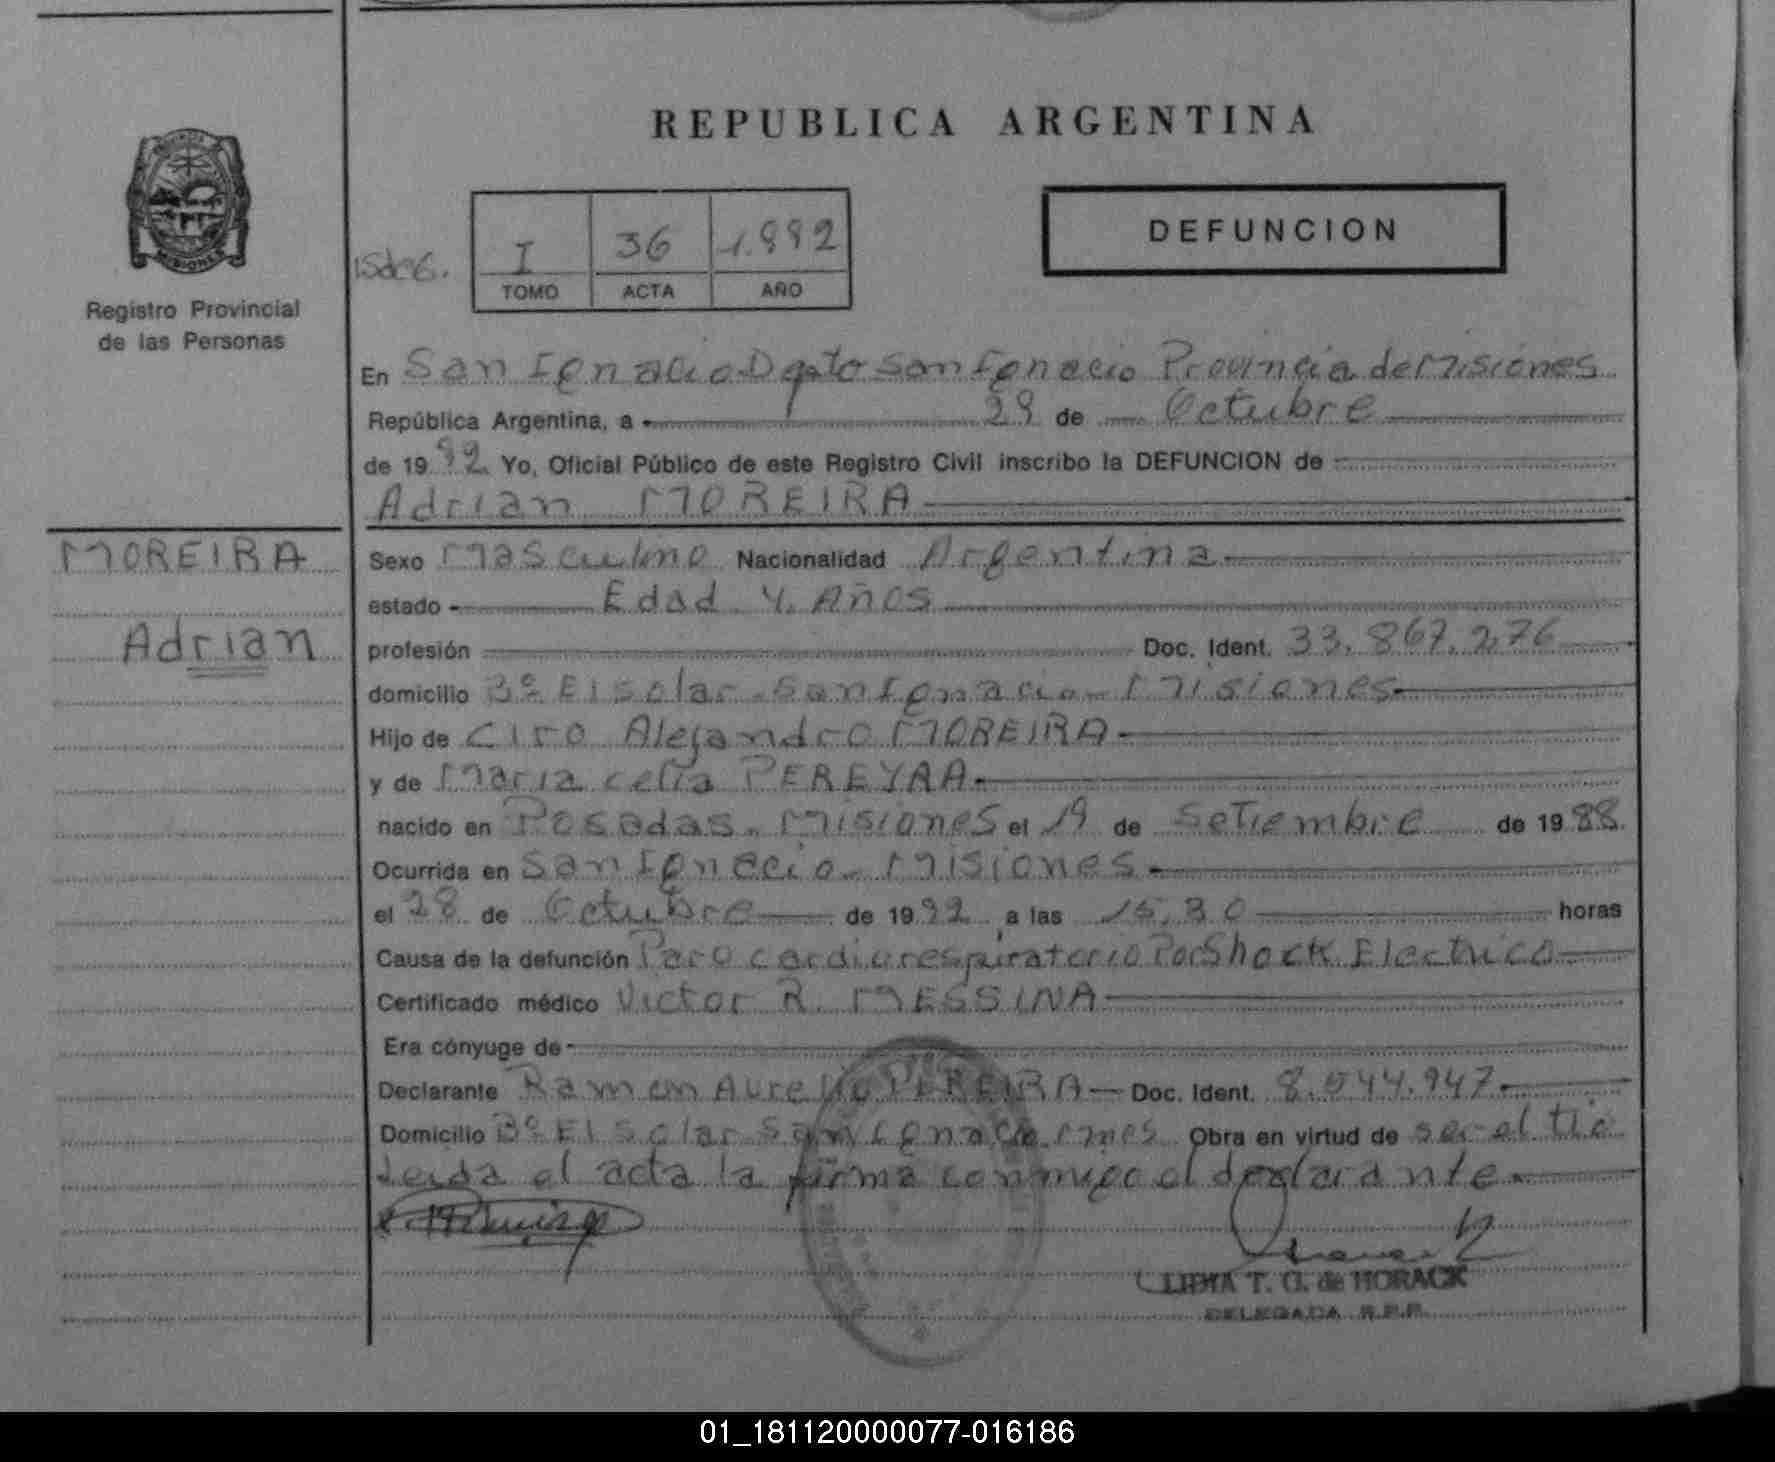 REPUBLICA ARGENTINA
DEFUNCION
I 36 1.992
TOMO ACTA AÑO
MISIONES
Registro Provincial
de las Personas
En San Ignacio Dpto San Ignacio Provincia de Misiones
República Argentina, a 29 de Octubre
de 19 92 Yo, Oficial Público de este Registro Civil inscribo la DEFUNCION de
Adrian MOREIRA
MOREIRA
Adrian
Sexo Masculino Nacionalidad Argentina
estado Edad 4 Años
profesión Doc. Ident. 33.867.276
domicilio Bº El Solar San Ignacio - Misiones
Hijo de Ciro Alejandro MOREIRA
y de Maria Celia PEREYRA
nacido en Posadas - Misiones el 19 de Setiembre de 19 88
Ocurrida en San Ignacio - Misiones
el 28 de Octubre de 19 92 a las 15,30 horas
Causa de la defunción Paro cardiorespiratorio Por Shock Electrico
Certificado médico Victor R. MESSINA
Era cónyuge de
Declarante Ramon Aurelio PEREIRA Doc. Ident. 8.544.947
Domicilio Bº El Solar San Ignacio Mnes Obra en virtud de ser el tio
Leida el acta la firma conmigo el declarante
T. G. de HORACK
DELEGADA R.P.P.
01_181120000077-016186